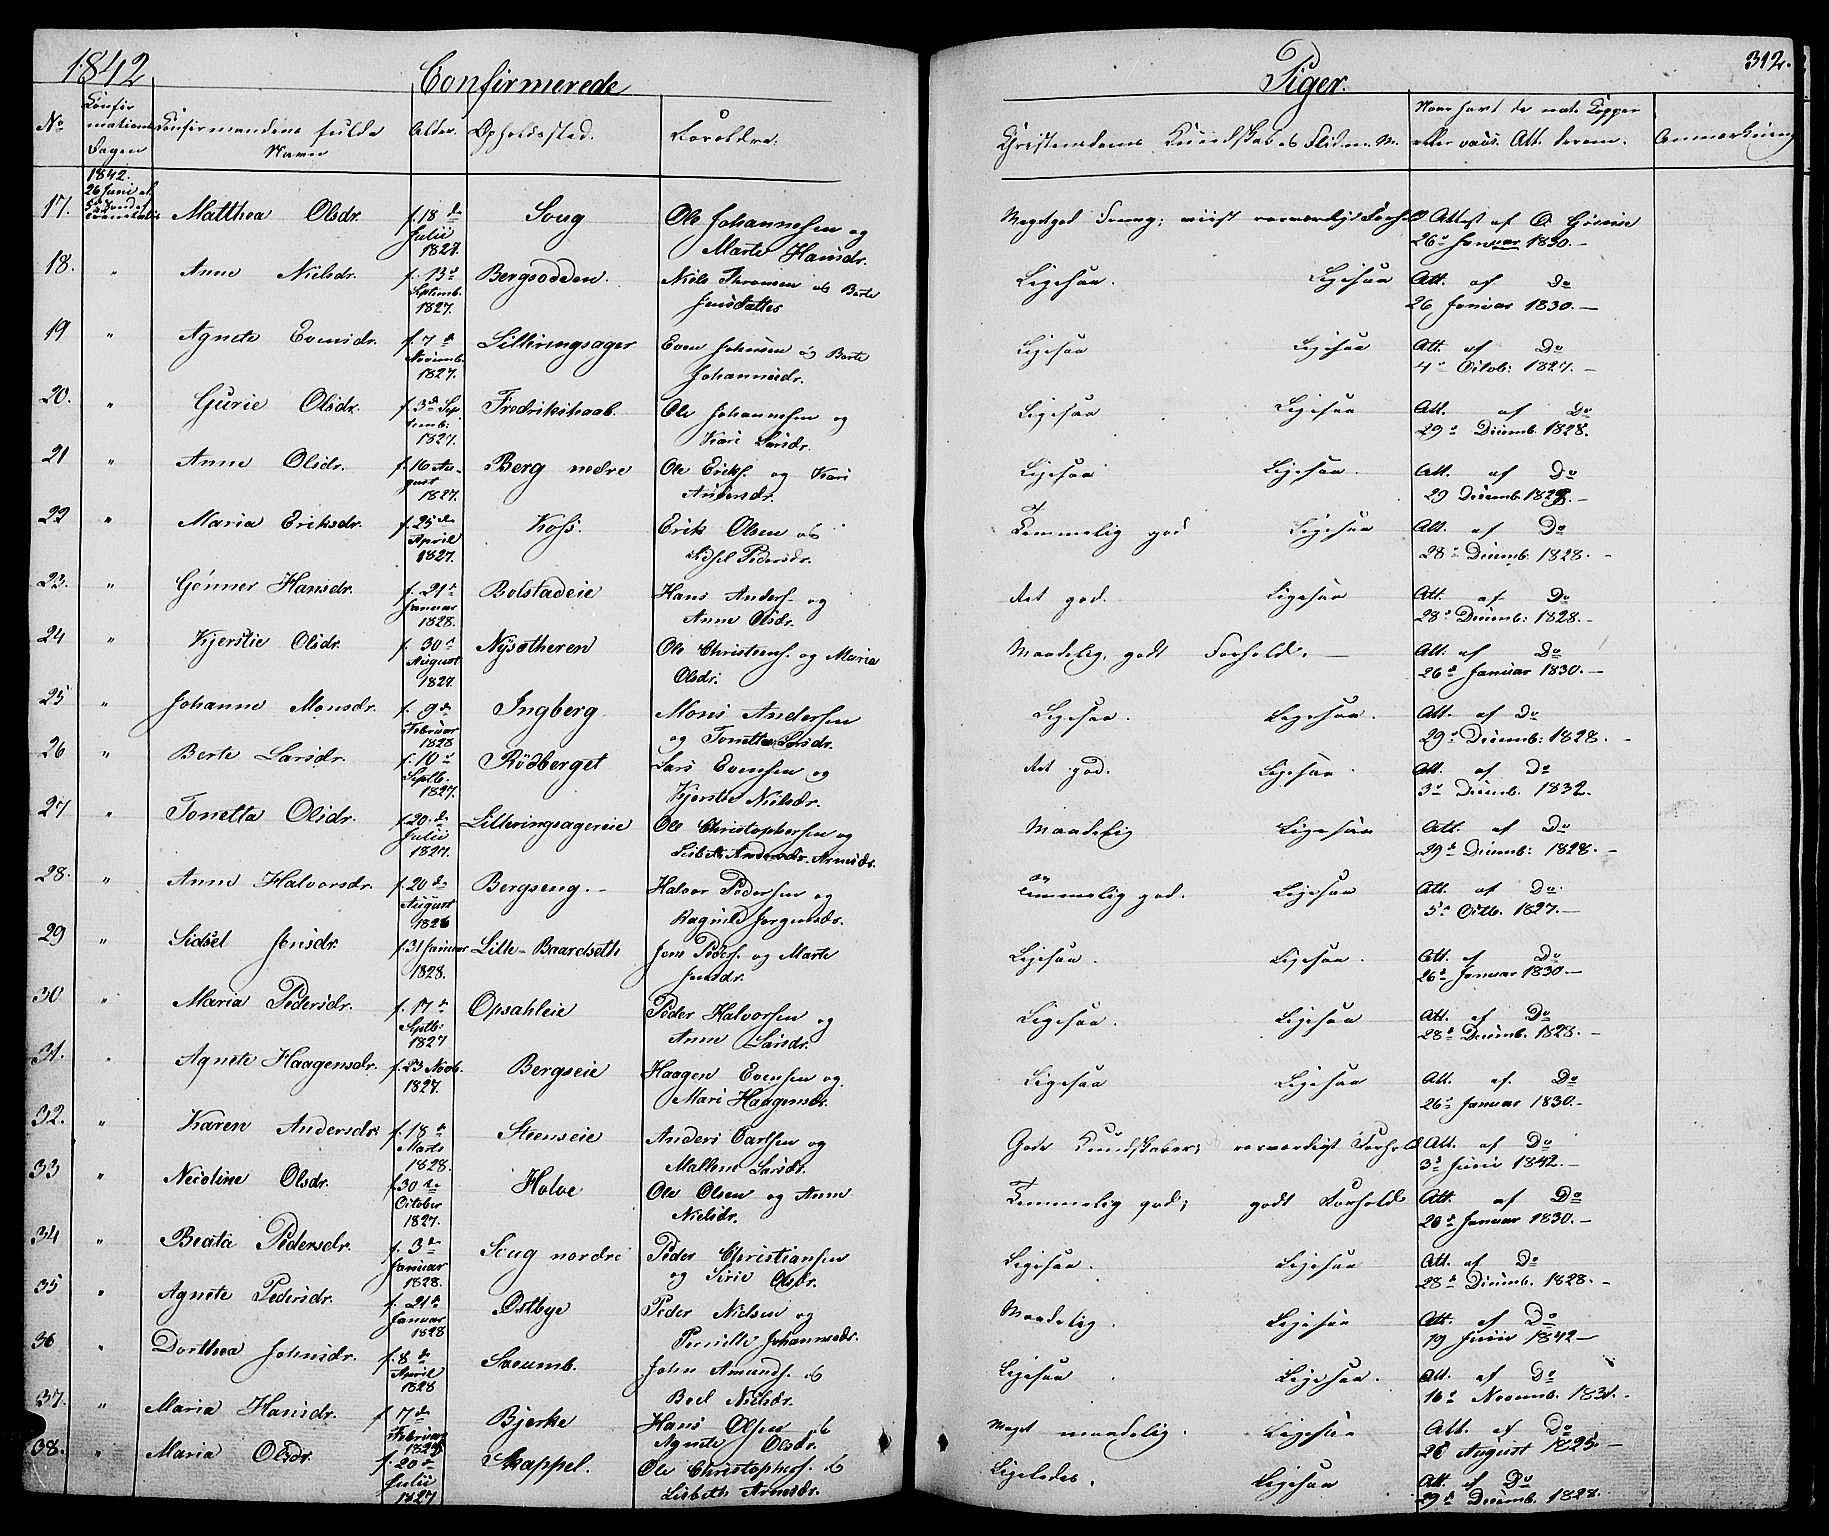 1842 Confirmerede Piger. 312.
No Confirmations Dagen Confirmandens fulde Navn Alder. Opholdssted. Forældre. Christendoms Kundskab og Flid m. M. Naar havt de nat. Kopper eller vacc. Att. derom. Anmærkning
1842.
26 Juni
17. Matthea Olsdr. f. 18 de Julii 1827. Soug Ole Johannesen og Marte Hansdr. Megetgod Attest af
26de Januar 1830.-
18. " Anne Nielsdr. f. 13de Septemb. 1827. Bergsodden. Niels Thronsen og Berte Jensdatter Ligesaa. Ligesaa Att. af Do
26 Januar 1830.-
19 " Agnete Evensdr. f. 7de Novemb. 1827. Lilleringsager Even Johnsen og Berte Johannesdr. Ligesaa Ligesaa Att. af Do
4de Octob: 1827.-
20. " Gurie Olsdr. f. 3de Septemb: 1827. Fredrikshaab. Ole Johannesen og Kari Larsdr. Ligesaa Ligesaa Att. af Do
29de Decemb. 1828.
21 " Anne Olsdr. f. 16 August 1827. Berg nedre Ole Eriks. og Kari Andersdr. Ligesaa Ligesaa. Att. af Do
29 Decemb. 1828.-
22 " Maria Eriksdr. f. 25de April 1827. Koss. Erik Olsen og Sidsel Pedersdr. Temmelig god Ligesaa Att. af Do
28de Decemb. 1828.-
23. " Gønner Hansdr. f. 21de Januar 1828. Bolstadeie Hans Anders. og Anne Olsdr. Ret god. Ligesaa Att. af Do
28de Decemb: 1828.-
24 " Kjerstie Olsdr. f. 30de August 1827 Nysetheren Ole Christens. og Maria Olsdr. Maadelig, godt Forhold. - Att. af Do
26de Januar 1830.-
25 " Johanne Monsdr. f. 9de Februar 1828 Ingberg Mons Andersen og Tonetta Larsdr. Ligesaa. Ligesaa. Att. af Do
29de Decemb: 1828.-
26 " Berte Larsdr. f. 10de Septb. 1827. Rødberget Lars Evensen og Kjerstie Nielsdr. Ret god. Ligesaa. Att. af Do
3de Decemb. 1832.
27 " Tonetta Olsdr. f. 20.de Julii 1827. Lilleringsagereie Ole Christophersen og Lisbeth Andersdr. Arnesdr. Maadelig Ligesaa Att. af Do
29de Decemb: 1828.-
28. " Anne Halvorsdr. f. 20de August 1826 Bergseng.- Halvor Pedersen og Ragnild Jorgensdr. Temmelig god. Ligesaa Att. af Do
5de Octb. 1827.-
29 " Sidsel Jensdr. f. 31 Januar 1828. Lille-Baardseth Jens Peders. og Marte Jensdr. Ligesaa. Ligesaa. Att. af Do
26de Januar 1830.-
30 " Maria Pedersdr. f. 17de Septb: 1827 Opsahleie Peder Halvorsen og Anne Larsdr. Ligesaa. Ligesaa Att. af Do
28de Decemb. 1828.-
31. " Agnete Haagensdr. f. 23 Novb. 1827. Bergseie Haagen Evensen og Mari Haagensdr. Ligesaa Ligesaa Att. af. Do
26de Januar 1830.-
32. " Karen Andersdr. f. 18de Marts 1828. Steenseie Anders Carlsen og Mallene Larsdr. Gode Kundskaber; Forhold Att. af Do
3de Junii 1842.-
33 " Nicoline Olsdr. f. 30de October 1827. Holve Ole Olsen og Anne Nielsdr. Temmelig god; godt Forhold Att. af Do
26de Januar 1830.-
34 " Beata Pedersdr. f. 3de Januar 1828. Soug nordre Peder Christiansen og Sirie Olsdr. Ligesaa. Ligesaa Att. af Do
28de Decemb. 1828.-
35 " Agnete Pedersdr. f. 21de Januar 1828 Østbye Peder Nielsen og Pernille Johannesdr. Maadelig. Ligesaa Att. af Do
19 Junii 1842-
36 " Dorthea Johnsdr. f. 8de April 1828 John Amunds. og Boel Nielsdr. Ligesaa Ligesaa. Att. af Do
16de Novemb. 1831.-
37. " Maria Hansdr. f. 7de Februar Bjerke Hans Olsen & Agnete Olsdr. Meget maadelig. Ligesaa Att. af Do
26 August 1825.-
38. " Maria Olsdr. f. 20de Julii 1827 Skappel. Ole Christophers. & Lisbeth Arnesdr. Ligeledes. Ligesaa Att. af Do
29de Decemb. 1828.